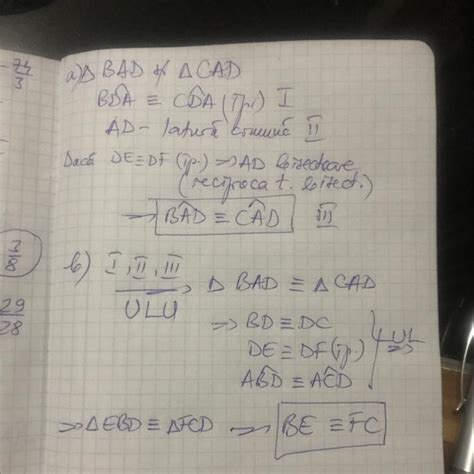 74/3
a) Δ BAD și Δ CAD
BDA ≡ CDA (ip.) I
AD - latură comună II
Dacă DE≡DF (ip.) => AD bisectoare
(reciproca t. bisect.)
=> BAD ≡ CAD III
3/8
b) I, II, III
ULU
=> Δ BAD ≡ Δ CAD
29/28
=> BD ≡ DC
DE ≡ DF (ip.)
ABD ≡ ACD
LUL =>
=> ΔEBD ≡ ΔFCD => BE ≡ FC